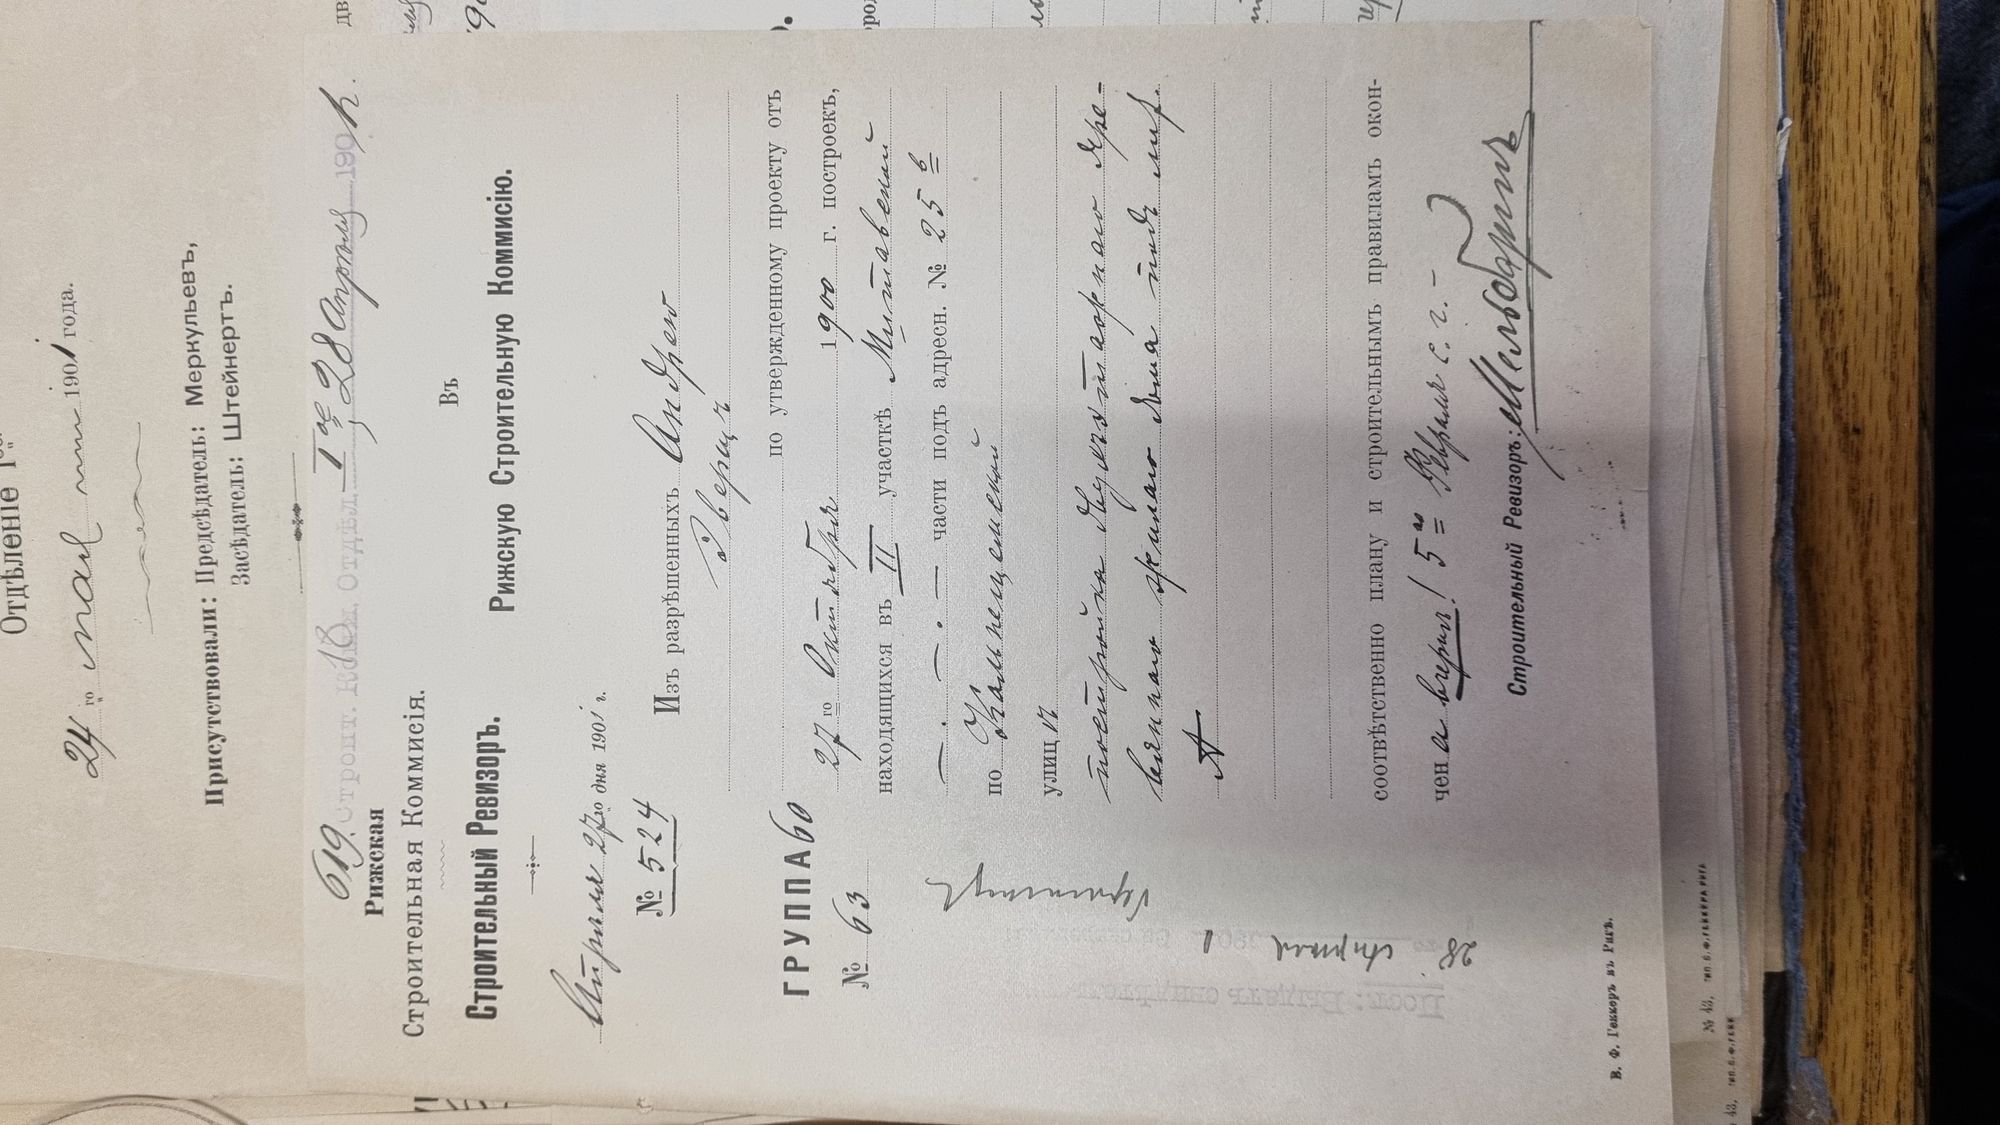 Отдѣленіе
24 го мая 1901 года.
Присутствовали: Предсѣдатель: Меркульевъ,
Засѣдатель: Штейнертъ.
619. Строит. Ком. Отдѣл. I ое 28 Апрѣля 1901 г.
Рижская
Строительная Коммисія.
Строительный Ревизоръ.
Апрѣля 27го дня 1901 г.
№ 524
ГРУППА 60
№ 63
Въ
Рижскую Строительную Коммисію.
Изъ разрѣшенныхъ Андрею
Эверицъ
по утвержденному проекту отъ
27 го Октября 1900 г. построекъ,
находящихся въ II участкѣ Митавской
части подъ адресн. № 25 в
по Кальнецемской
улицѣ
постройка двухэтажнаго дре-
вяннаго жилаго дома подъ лит.
А
соотвѣтственно плану и строительнымъ правиламъ окон-
чена вчернѣ! 5 го Февраля с. г. –
Строительный Ревизоръ:
28 Апрѣля 1
Пост.: Выдать свидѣтель-
В. Ф. Геккеръ въ Ригѣ.
№ 43. тип. В. Ф. ГЕККЕРА РИГА